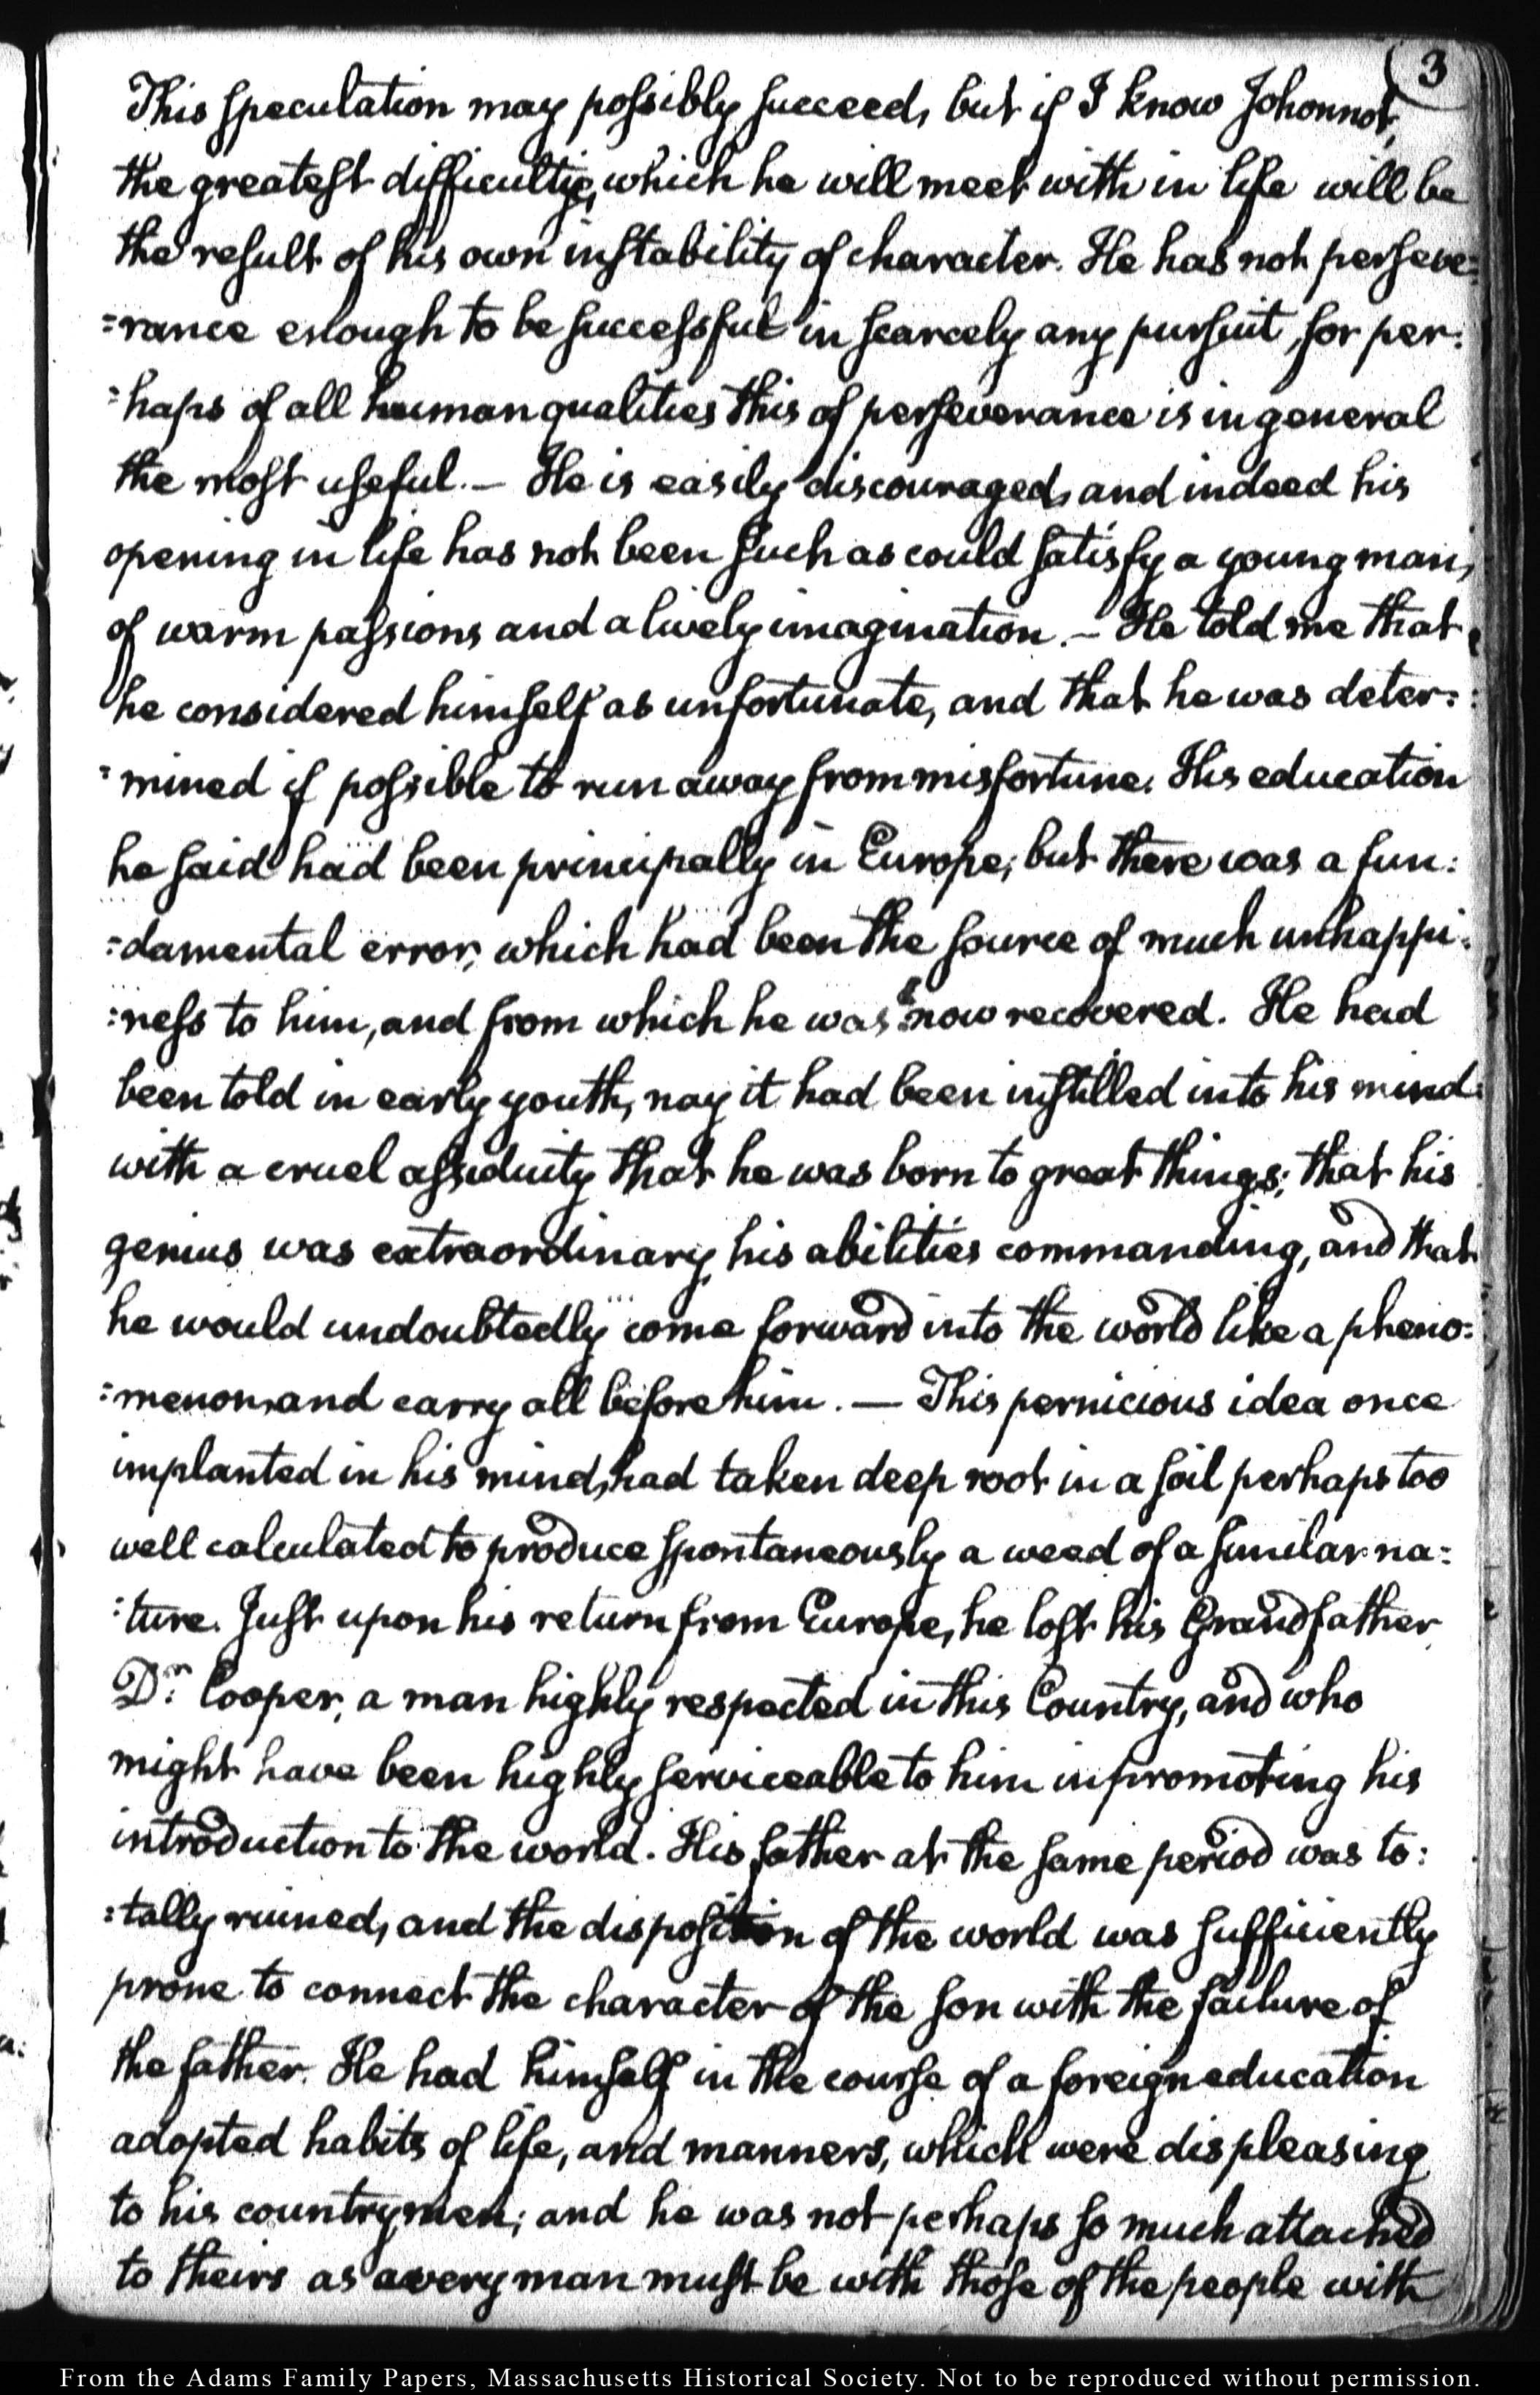 3
This speculation may possibly succeed, but if I know Johonnot,
the greatest difficulties, which he will meet with in life will be
the result of his own instability of character. He has not perseve=
=rance enough to be successful in scarcely any pursuit, for per:
:haps of all human qualities this of perseverance is in general
the most useful. — He is easily discouraged, and indeed his
opening in life has not been such as could satisfy a young man,
of warm passions and a lively imagination. — He told me that
he considered himself as unfortunate, and that he was deter:
:mined if possible to run away from misfortune. His education
he said had been principally in Europe; but there was a fun:
:damental error, which had been the source of much unhappi:
:ness to him, and from which he was now recovered. He had
been told in early youth, nay it had been instilled into his mind
with a cruel assiduity that he was born to great things; that his
genius was extraordinary, his abilities commanding, and that
he would undoubtedly come forward into the world like a pheno:
:menon, and carry all before him. — This pernicious idea once
implanted in his mind, had taken deep root in a soil perhaps too
well calculated to produce spontaneously a weed of a similar na:
:ture. Just upon his return from Europe, he lost his Grandfather
Dr. Cooper, a man highly respected in this Country, and who
might have been highly serviceable to him in promoting his
introduction to the world. His father at the same period was to:
:tally ruined, and the disposition of the world was sufficiently
prone to connect the character of the son with the failure of
the father. He had himself in the course of a foreign education
adopted habits of life, and manners, which were displeasing
to his countrymen; and he was not perhaps so much attached
to theirs as every man must be with those of the people with
From the Adams Family Papers, Massachusetts Historical Society. Not to be reproduced without permission.